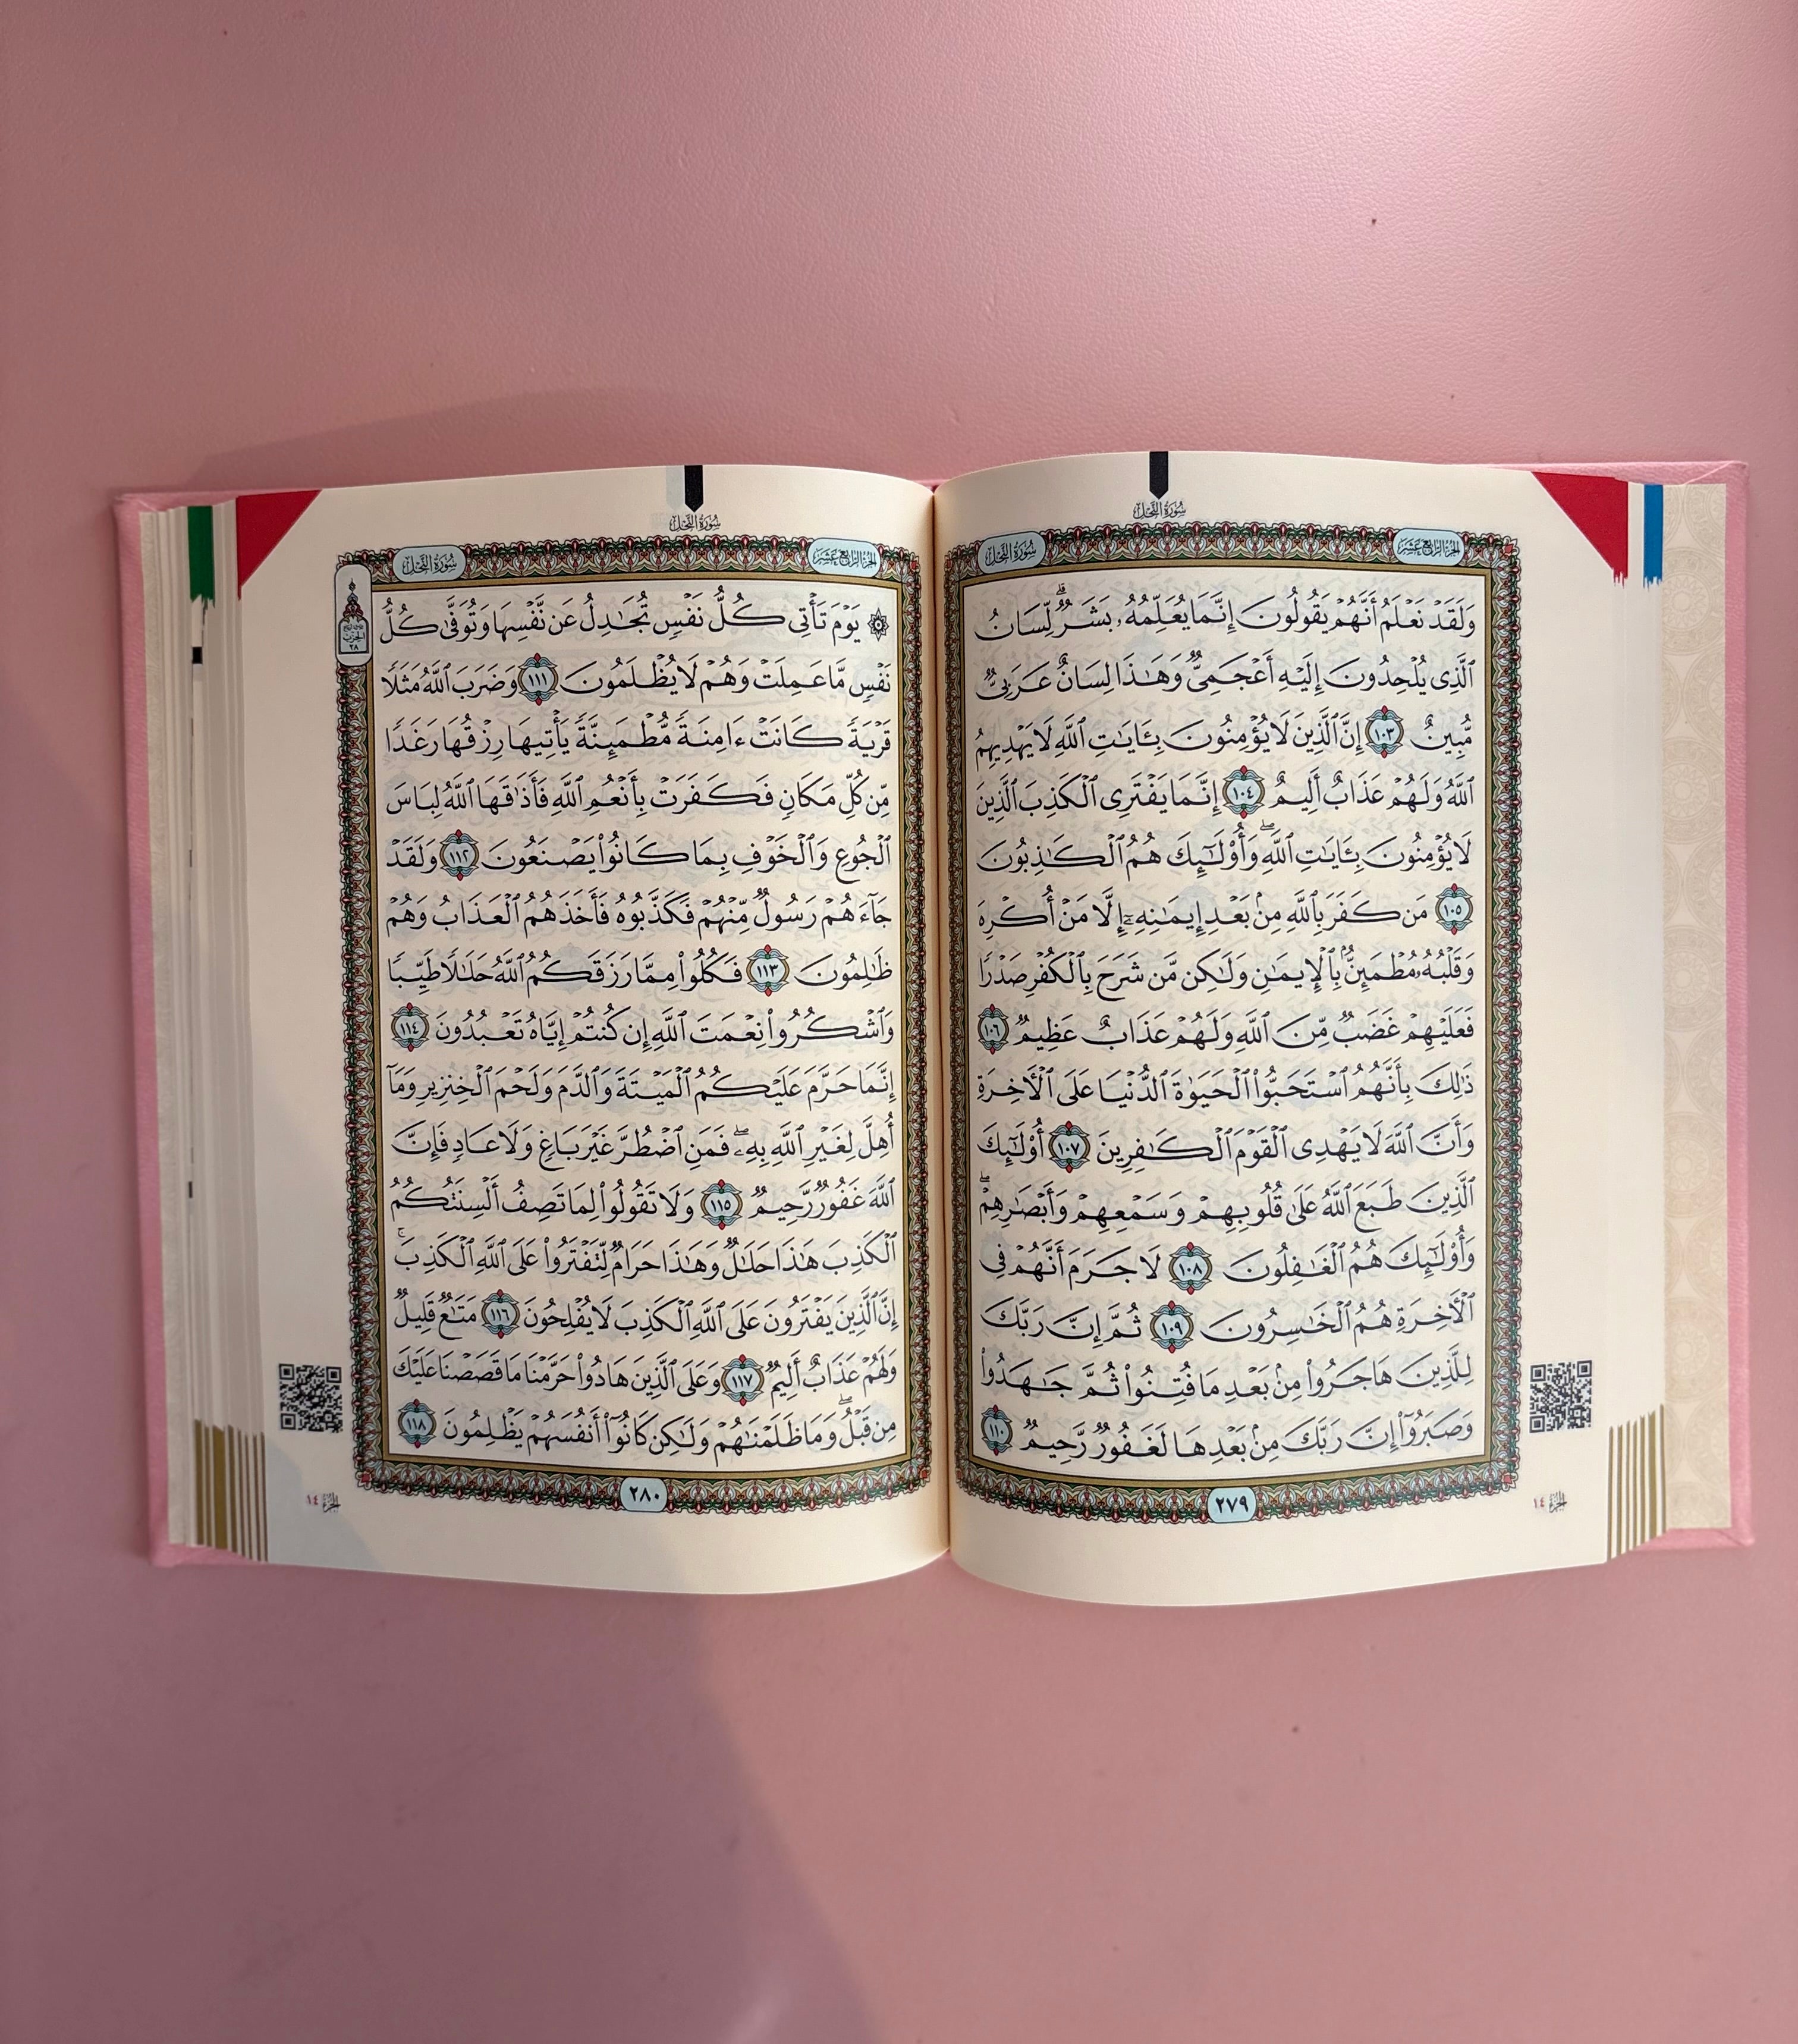 سُورَةُ النَّحْلِ
الجُزْءُ الرَّابِعُ عَشَرَ
سُورَةُ النَّحْلِ
وَلَقَدْ نَعْلَمُ أَنَّهُمْ يَقُولُونَ إِنَّمَا يُعَلِّمُهُۥ بَشَرٌۗ لِّسَانُ
ٱلَّذِى يُلْحِدُونَ إِلَيْهِ أَعْجَمِىٌّ وَهَـٰذَا لِسَانٌ عَرَبِىٌّ
مُّبِينٌ ١٠٣ إِنَّ ٱلَّذِينَ لَا يُؤْمِنُونَ بِـَٔايَـٰتِ ٱللَّهِ لَا يَهْدِيهِمُ
ٱللَّهُ وَلَهُمْ عَذَابٌ أَلِيمٌ ١٠٤ إِنَّمَا يَفْتَرِى ٱلْكَذِبَ ٱلَّذِينَ
لَا يُؤْمِنُونَ بِـَٔايَـٰتِ ٱللَّهِۖ وَأُو۟لَـٰٓئِكَ هُمُ ٱلْكَـٰذِبُونَ
١٠٥ مَن كَفَرَ بِٱللَّهِ مِنۢ بَعْدِ إِيمَـٰنِهِۦٓ إِلَّا مَنْ أُكْرِهَ
وَقَلْبُهُۥ مُطْمَئِنٌّۢ بِٱلْإِيمَـٰنِ وَلَـٰكِن مَّن شَرَحَ بِٱلْكُفْرِ صَدْرًا
فَعَلَيْهِمْ غَضَبٌ مِّنَ ٱللَّهِ وَلَهُمْ عَذَابٌ عَظِيمٌ ١٠٦
ذَٰلِكَ بِأَنَّهُمُ ٱسْتَحَبُّوا۟ ٱلْحَيَوٰةَ ٱلدُّنْيَا عَلَى ٱلْـَٔاخِرَةِ
وَأَنَّ ٱللَّهَ لَا يَهْدِى ٱلْقَوْمَ ٱلْكَـٰفِرِينَ ١٠٧ أُو۟لَـٰٓئِكَ
ٱلَّذِينَ طَبَعَ ٱللَّهُ عَلَىٰ قُلُوبِهِمْ وَسَمْعِهِمْ وَأَبْصَـٰرِهِمْۖ
وَأُو۟لَـٰٓئِكَ هُمُ ٱلْغَـٰفِلُونَ ١٠٨ لَا جَرَمَ أَنَّهُمْ فِى
ٱلْـَٔاخِرَةِ هُمُ ٱلْخَـٰسِرُونَ ١٠٩ ثُمَّ إِنَّ رَبَّكَ
لِلَّذِينَ هَاجَرُوا۟ مِنۢ بَعْدِ مَا فُتِنُوا۟ ثُمَّ جَـٰهَدُوا۟
وَصَبَرُوٓا۟ إِنَّ رَبَّكَ مِنۢ بَعْدِهَا لَغَفُورٌ رَّحِيمٌ ١١٠
٢٧٩
الجزء ١٤
سُورَةُ النَّحْلِ
الجُزْءُ الرَّابِعُ عَشَرَ
سُورَةُ النَّحْلِ
الحزب
٢٨
۞ يَوْمَ تَأْتِى كُلُّ نَفْسٍ تُجَـٰدِلُ عَن نَّفْسِهَا وَتُوَفَّىٰ كُلُّ
نَفْسٍ مَّا عَمِلَتْ وَهُمْ لَا يُظْلَمُونَ ١١١ وَضَرَبَ ٱللَّهُ مَثَلًا
قَرْيَةً كَانَتْ ءَامِنَةً مُّطْمَئِنَّةً يَأْتِيهَا رِزْقُهَا رَغَدًا
مِّن كُلِّ مَكَانٍ فَكَفَرَتْ بِأَنْعُمِ ٱللَّهِ فَأَذَٰقَهَا ٱللَّهُ لِبَاسَ
ٱلْجُوعِ وَٱلْخَوْفِ بِمَا كَانُوا۟ يَصْنَعُونَ ١١٢ وَلَقَدْ
جَآءَهُمْ رَسُولٌ مِّنْهُمْ فَكَذَّبُوهُ فَأَخَذَهُمُ ٱلْعَذَابُ وَهُمْ
ظَـٰلِمُونَ ١١٣ فَكُلُوا۟ مِمَّا رَزَقَكُمُ ٱللَّهُ حَلَـٰلًا طَيِّبًا
وَٱشْكُرُوا۟ نِعْمَتَ ٱللَّهِ إِن كُنتُمْ إِيَّاهُ تَعْبُدُونَ ١١٤
إِنَّمَا حَرَّمَ عَلَيْكُمُ ٱلْمَيْتَةَ وَٱلدَّمَ وَلَحْمَ ٱلْخِنزِيرِ وَمَآ
أُهِلَّ لِغَيْرِ ٱللَّهِ بِهِۦۖ فَمَنِ ٱضْطُرَّ غَيْرَ بَاغٍ وَلَا عَادٍ فَإِنَّ
ٱللَّهَ غَفُورٌ رَّحِيمٌ ١١٥ وَلَا تَقُولُوا۟ لِمَا تَصِفُ أَلْسِنَتُكُمُ
ٱلْكَذِبَ هَـٰذَا حَلَـٰلٌ وَهَـٰذَا حَرَامٌ لِّتَفْتَرُوا۟ عَلَى ٱللَّهِ ٱلْكَذِبَۚ
إِنَّ ٱلَّذِينَ يَفْتَرُونَ عَلَى ٱللَّهِ ٱلْكَذِبَ لَا يُفْلِحُونَ ١١٦ مَتَـٰعٌ قَلِيلٌ
وَلَهُمْ عَذَابٌ أَلِيمٌ ١١٧ وَعَلَى ٱلَّذِينَ هَادُوا۟ حَرَّمْنَا مَا قَصَصْنَا عَلَيْكَ
مِن قَبْلُۖ وَمَا ظَلَمْنَـٰهُمْ وَلَـٰكِن كَانُوٓا۟ أَنفُسَهُمْ يَظْلِمُونَ ١١٨
٢٨٠
الجزء ١٤